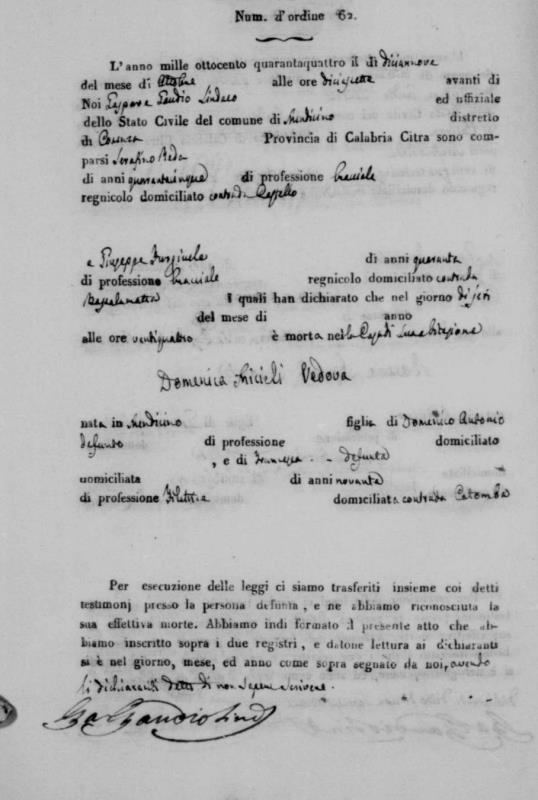 Num. d'ordine 62.
L'anno mille ottocento quarantaquattro il dì diciannove
del mese di Ottobre alle ore diciasette avanti di
Noi Gaspare Gaudio Sindaco ed uffiziale
dello Stato Civile del comune di Mendicino distretto
di Cosenza Provincia di Calabria Citra sono com-
parsi Serafino Reda
di anni quarantacinque di professione bracciale
regnicolo domiciliato contrada Cappello
e Giuseppe di anni quaranta
di professione bracciale regnicolo domiciliato contrada
I quali han dichiarato che nel giorno di jeri
del mese di anno
alle ore ventiquattro è morta nella Casa di Sua abitazione
Domenica Vedova
nata in Mendicino figlia di Domenico Antonio
defunto di professione domiciliato
, e di Francesca defunta
domiciliata di anni novanta
di professione Filatrice domiciliata contrada Catomba
Per esecuzione delle leggi ci siamo trasferiti insieme coi detti
testimonj presso la persona defunta, e ne abbiamo riconosciuta la
sua effettiva morte. Abbiamo indi formato il presente atto che ab-
biamo inscritto sopra i due registri, e datone lettura ai dichiaranti
si è nel giorno, mese, ed anno come sopra segnato da noi, avendo
li dichiaranti detto di non sapere scrivere.
Ga Gaudio Sind